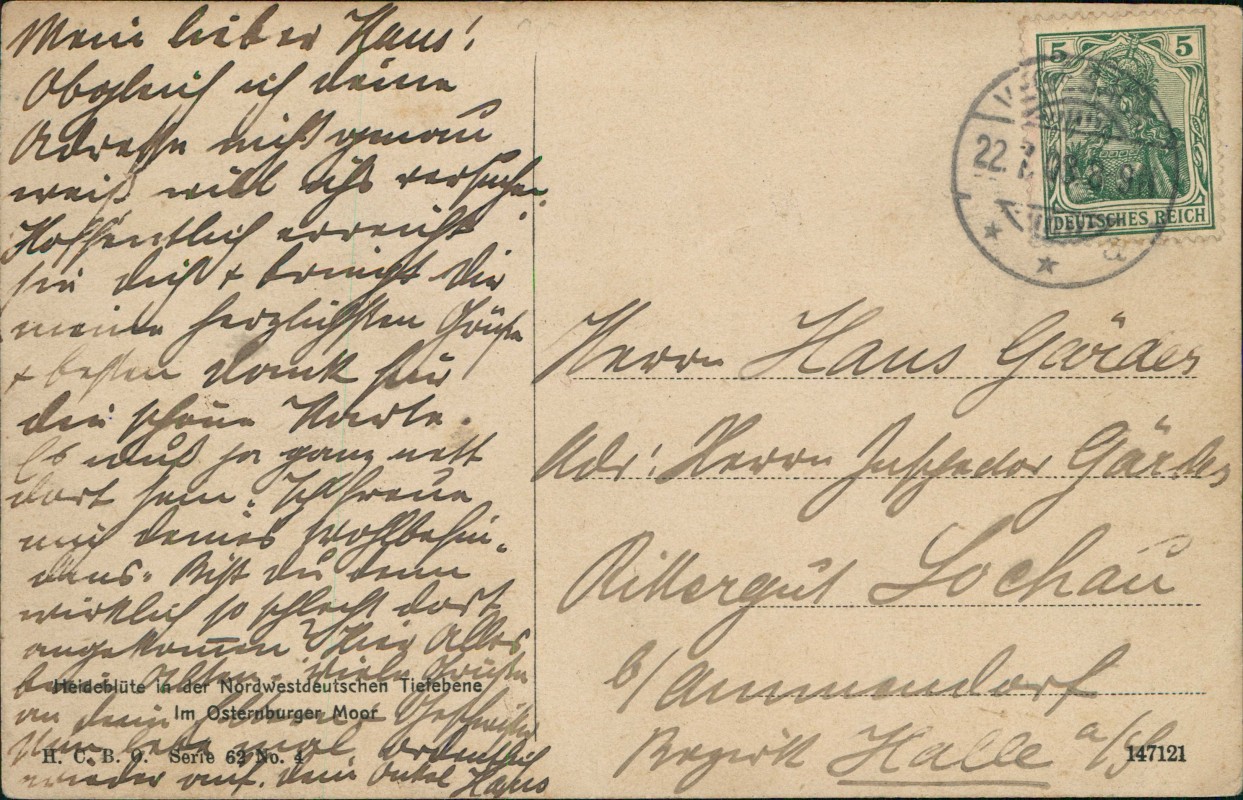 Mein lieber Hans!
Obgleich ich deine
Adresse nicht genau
weiß will ichs versuchen.
Hoffentlich erreicht
sie dich & bringt dir
meine herzlichsten Grüße
& besten Dank für
die schöne Karte.
Es muß ja ganz nett
dort sein. Ich freue
mich deines Wohlbefin-
dens. Bist du denn
wirklich so schlecht dort
angekommen? Hier Alles
beim Alten. Viele Grüße
an dein Geschwister
mal ordentlich
wieder auf. Dein Onkel Hans
Heideblüte in der Nordwestdeutschen Tiefebene
Im Osternburger Moor
H. C. B. O. Serie 62 No. 4
5 5
DEUTSCHES REICH
22. 08. 8-9
Herrn Hans Gärdes
Adr: Herrn Inspector Gärdes
Rittergut Lochau
b/Ammendorf
Bezirk Halle a/S
147121